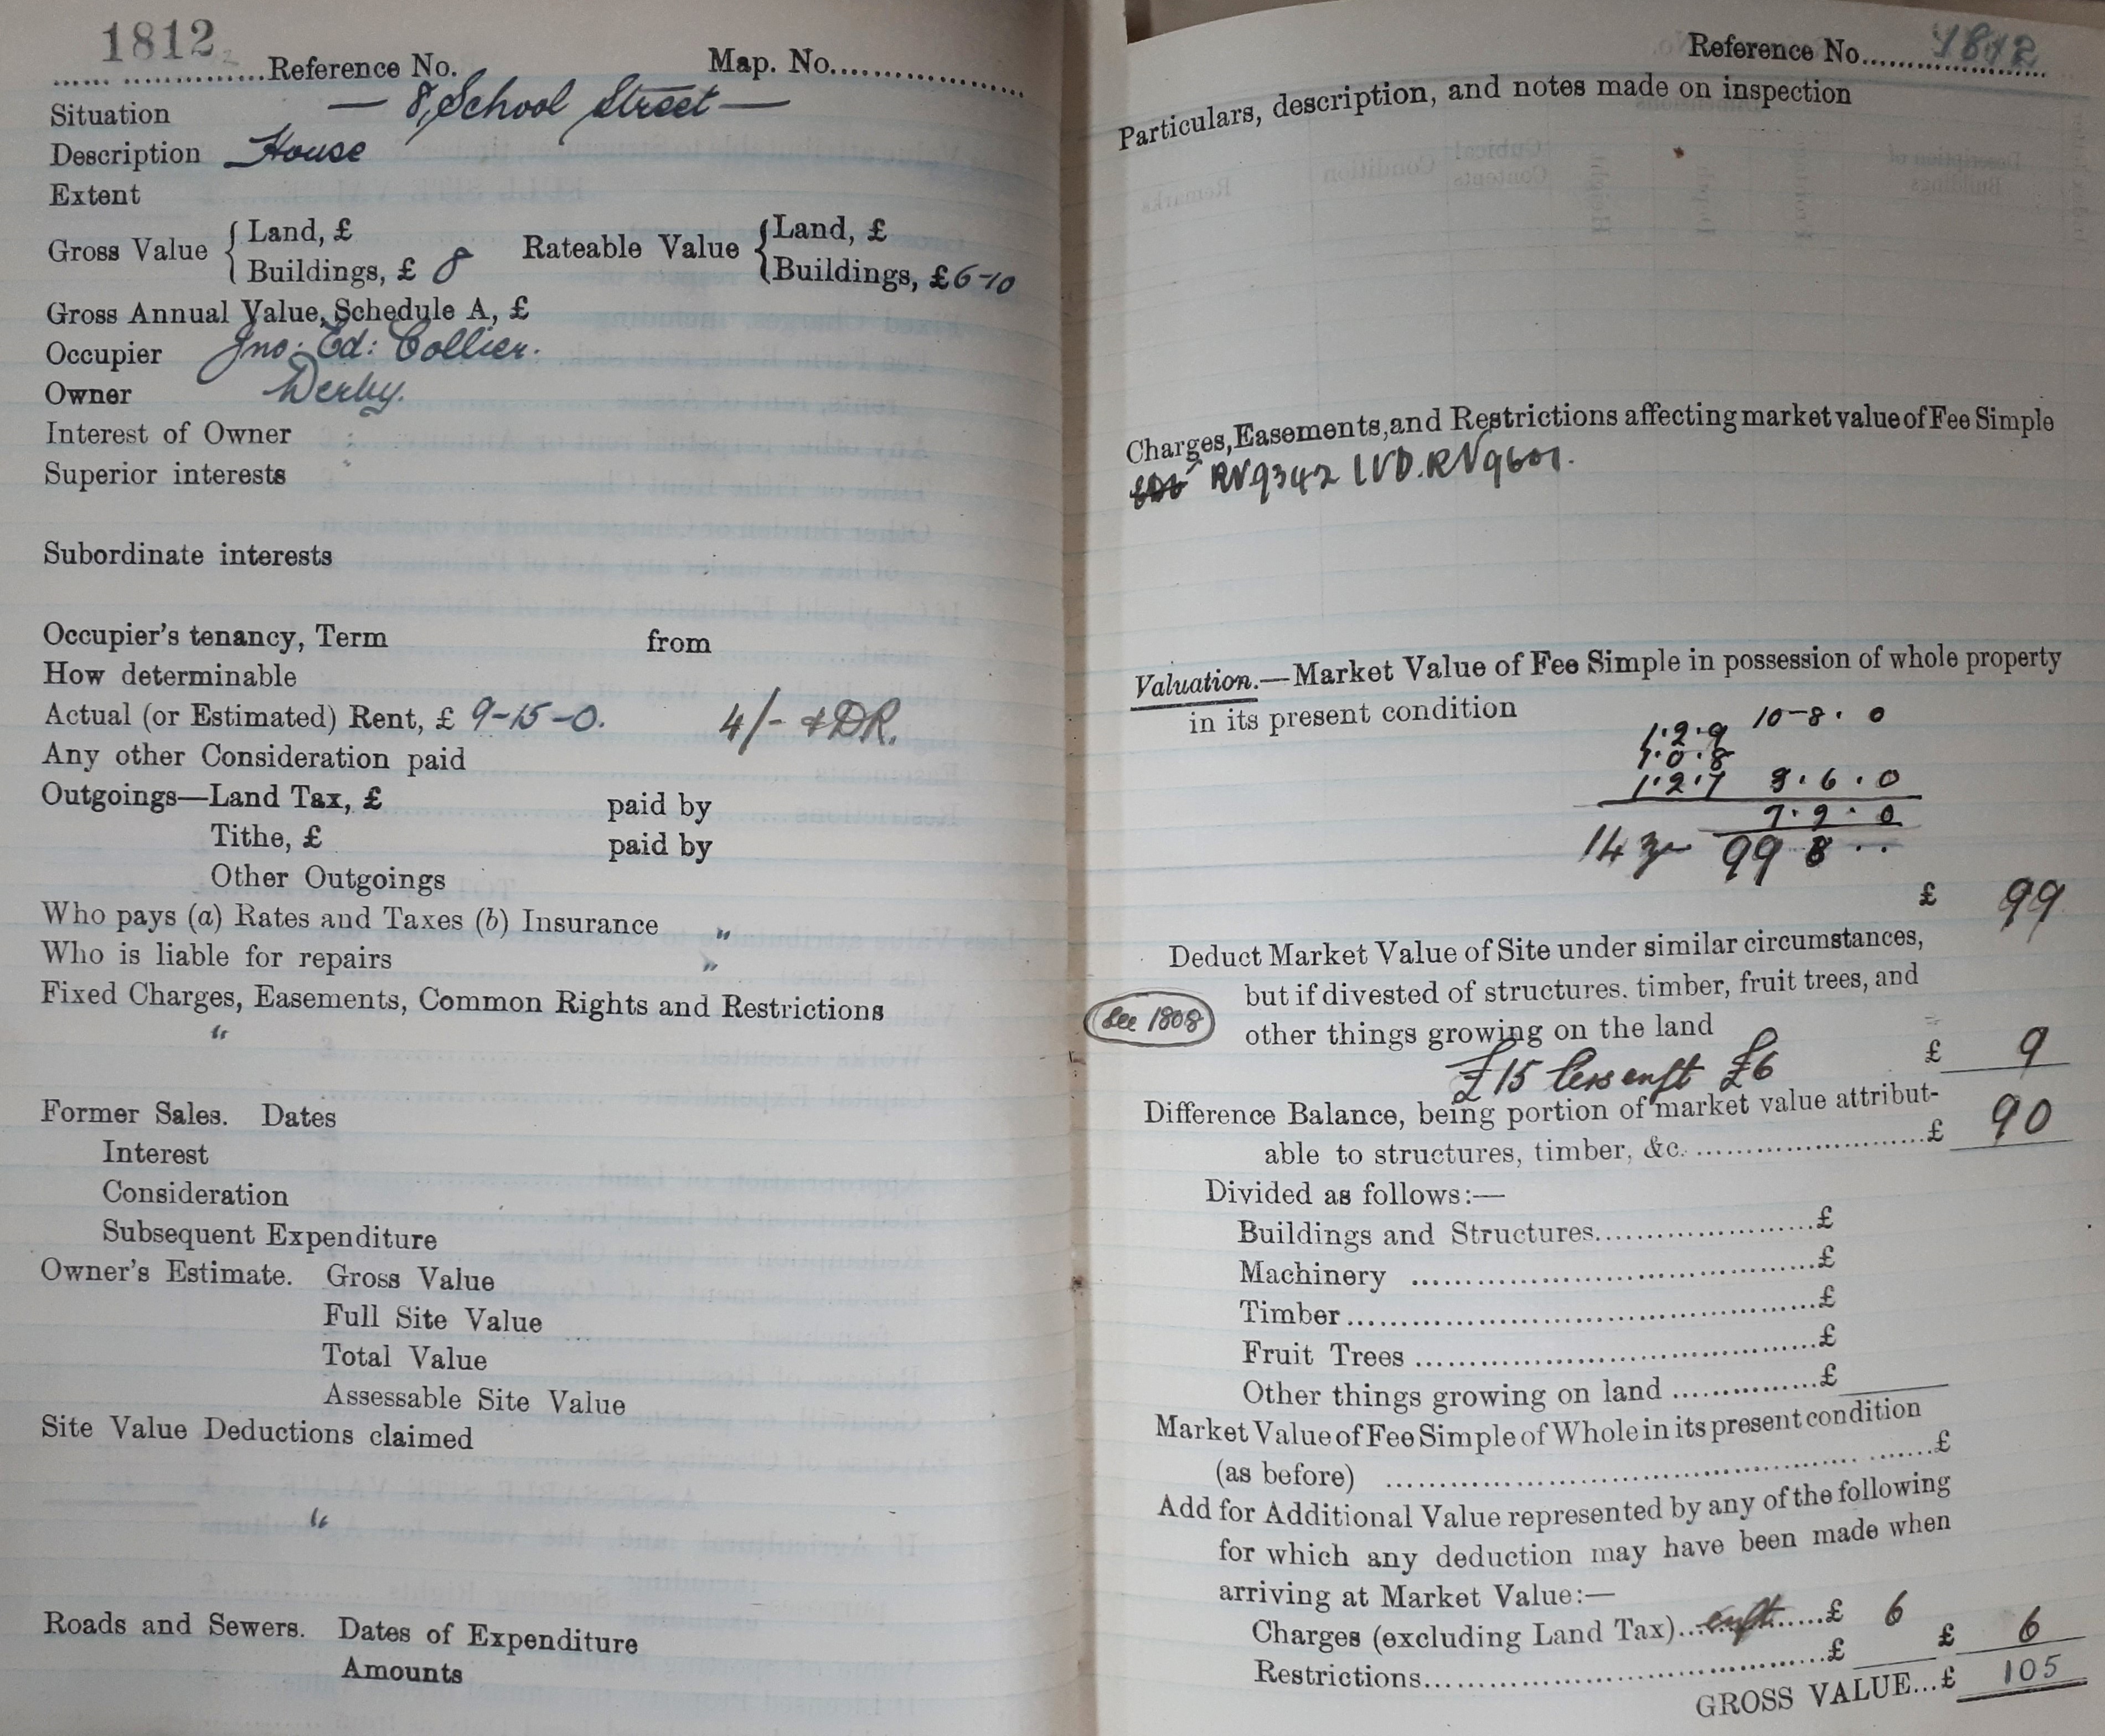 1812
Reference No. Map. No.
Situation — 8, School Street —
Description House
Extent
Gross Value { Land, £ Rateable Value { Land, £
Buildings, £ 8 Buildings, £ 6-10
Gross Annual Value, Schedule A, £
Occupier Jno: Ed: Collier.
Owner Derby.
Interest of Owner
Superior interests
Subordinate interests
Occupier's tenancy, Term from
How determinable
Actual (or Estimated) Rent, £ 9-15-0. 4/- & DR.
Any other Consideration paid
Outgoings—Land Tax, £ paid by
Tithe, £ paid by
Other Outgoings
Who pays (a) Rates and Taxes (b) Insurance "
Who is liable for repairs "
Fixed Charges, Easements, Common Rights and Restrictions
"
Former Sales. Dates
Interest
Consideration
Subsequent Expenditure
Owner's Estimate. Gross Value
Full Site Value
Total Value
Assessable Site Value
Site Value Deductions claimed
"
Roads and Sewers. Dates of Expenditure
Amounts
Reference No. 1812
Particulars, description, and notes made on inspection
Charges, Easements, and Restrictions affecting market value of Fee Simple
RV9342 LVD. RV9601.
Valuation.—Market Value of Fee Simple in possession of whole property
in its present condition
1.2.9 10-8.0
1.0.8
1.2.7 3.6.0
7.2.0
14 99 8 ..
£ 99
Deduct Market Value of Site under similar circumstances,
but if divested of structures. timber, fruit trees, and
See 1808 other things growing on the land
£15 less enft £6 £ 9
Difference Balance, being portion of market value attribut-
able to structures, timber, &c. £ 90
Divided as follows:—
Buildings and Structures £
Machinery £
Timber £
Fruit Trees £
Other things growing on land £
Market Value of Fee Simple of Whole in its present condition
(as before) £
Add for Additional Value represented by any of the following
for which any deduction may have been made when
arriving at Market Value:—
Charges (excluding Land Tax) enft £ 6
Restrictions £ £ 6
GROSS VALUE...£ 105